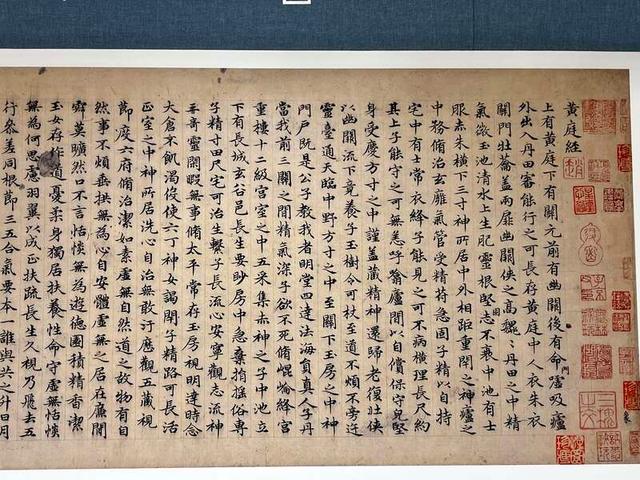 黄庭經
上有黄庭下有關元前有幽關後有命門噓吸廬
外出入丹田審能行之可長存黄庭中人衣朱衣
關門壯蘥蓋兩扉幽關俠之高巍〻丹田之中精
氣微玉池清水上生肥靈根堅志不衰中池有士
服赤朱橫下三寸神所居中外相距重閉之神廬之
中務脩治玄廱氣管受精符急固子精以自持
宅中有士常衣絳子能見之可不病橫理長尺約
其上子能守之可無恙呼噏廬間以自償保守皃堅
身受慶方寸之中謹蓋藏精神還歸老復壯俠
以幽關流下竟養子玉樹令可杖至道不煩不旁迕
靈臺通天臨中野方寸之中至關下玉房之中神
門戶既是公子教我者明堂四達法海員真人子丹
當我前三關之間精氣深子欲不死脩崐崘絳宮
重樓十二級宮室之中五采集赤神之子中池立
下有長城玄谷邑長生要眇房中急棄捐搖俗專
子精寸田尺宅可治生繫子長流心安寧觀志流神
三奇靈閒暇無事脩太平常存玉房視明達時念
大倉不飢渴役使六丁神女謁閉子精路可長活
正室之中神所居洗心自治無敢汙歷觀五藏視
節度六府脩治潔如素虛無自然道之故物有自
然事不煩垂拱無為心自安體虛無之居在廉閒
寂莫曠然口不言恬惔無為遊德園積精香潔
玉女存作道憂柔身獨居扶養性命守虛無恬惔
無為何思慮羽翼以成正扶疏長生久視乃飛去五
行參差同根節三五合氣要本一誰與共之升日月